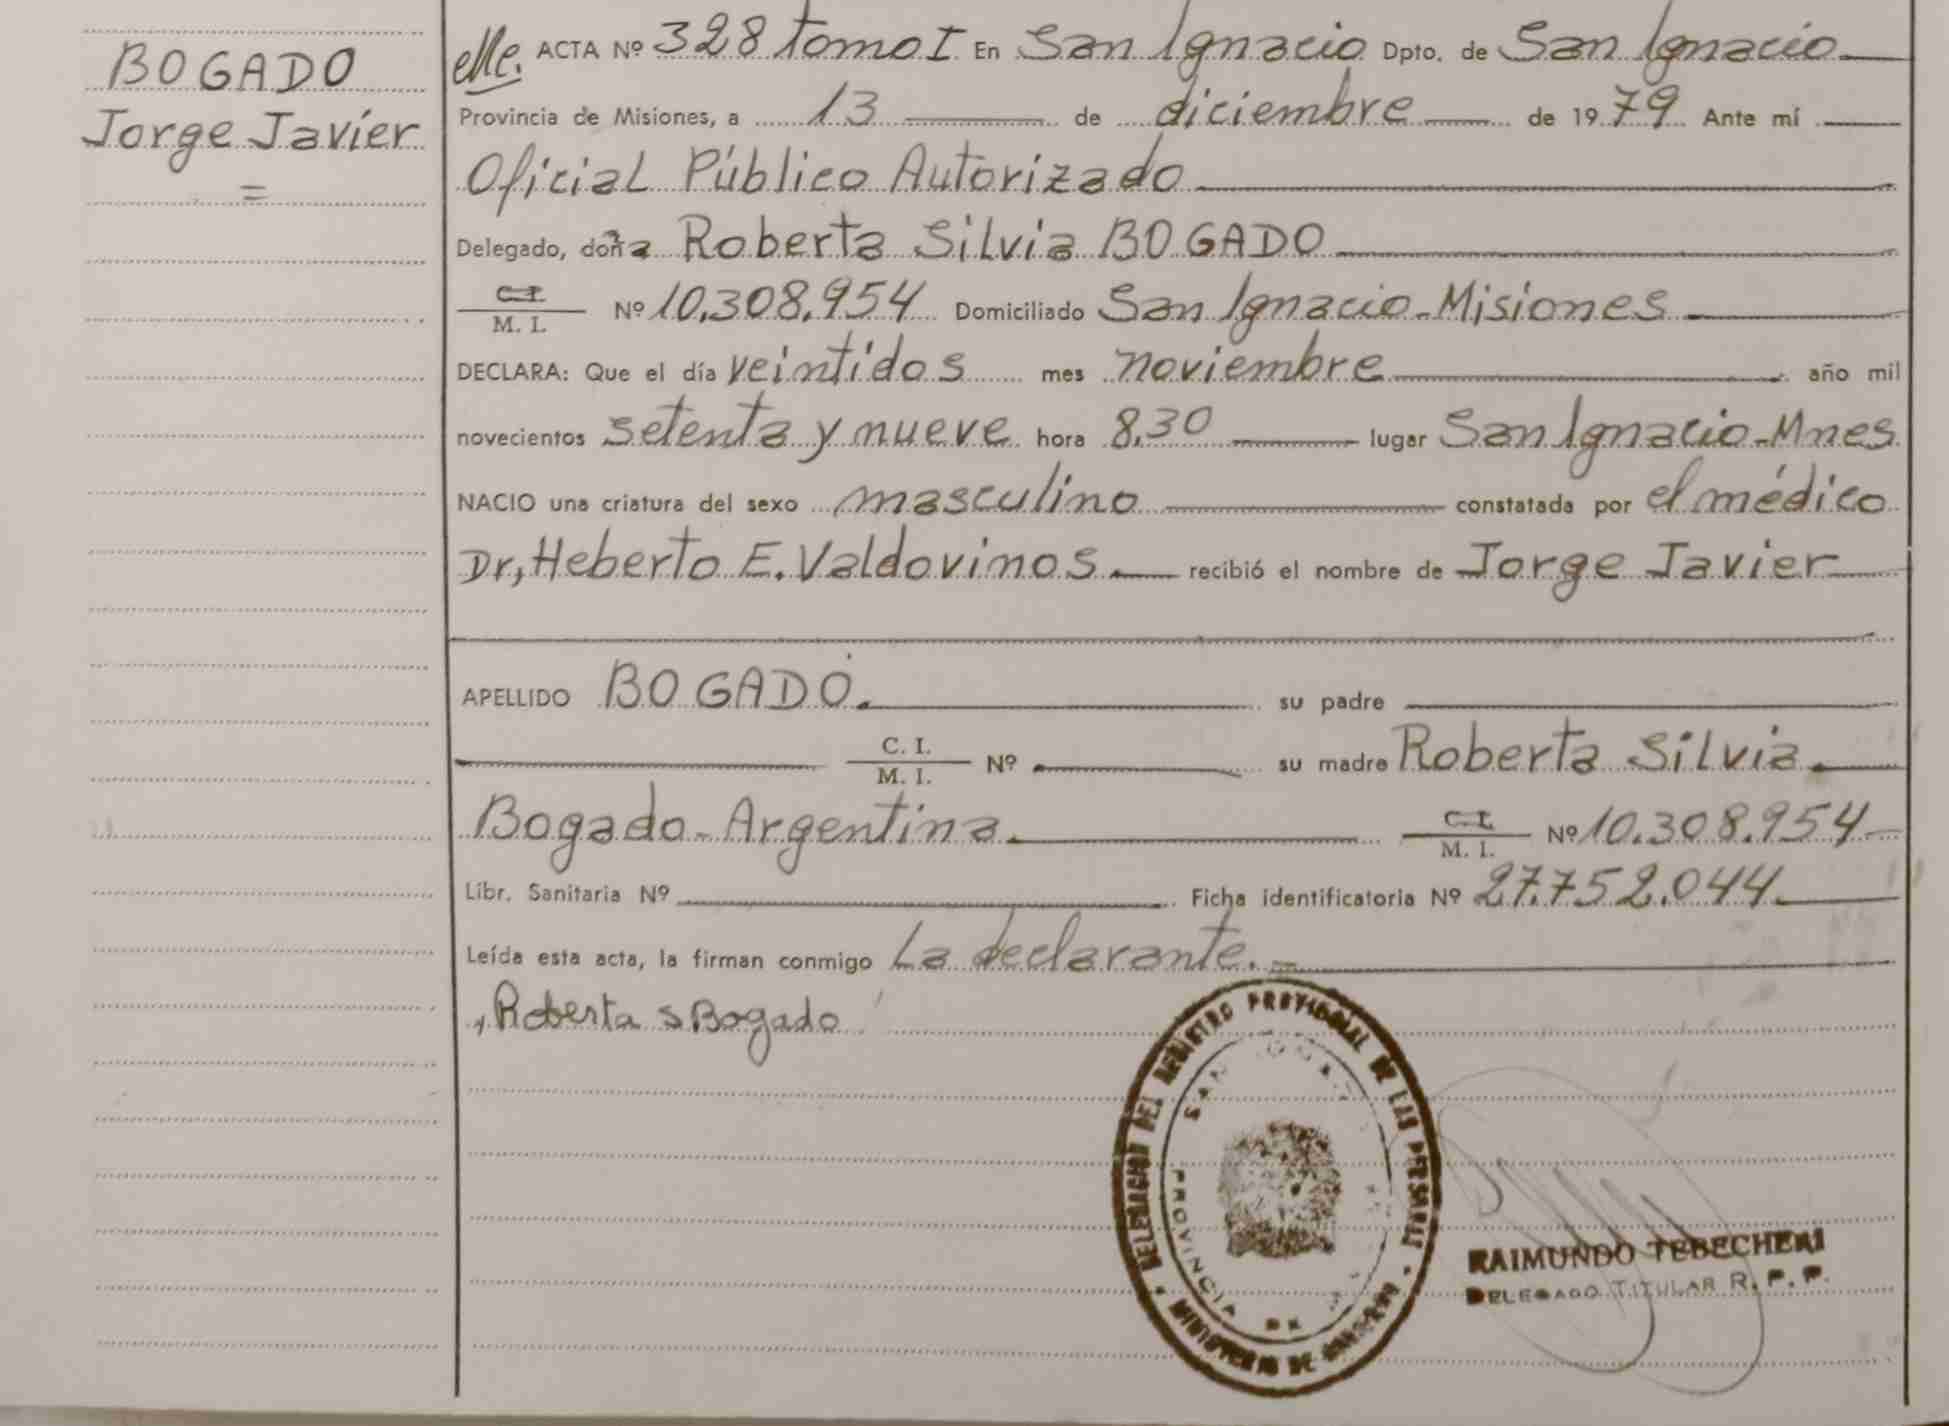 BOGADO
Jorge Javier
=
ACTA Nº 328 tomo I En San Ignacio Dpto. de San Ignacio
Provincia de Misiones, a 13 de diciembre de 1979 Ante mí
Oficial Público Autorizado
Delegado, doña Roberta Silvia BOGADO
C. I.
M. I. Nº 10.308.954 Domiciliado San Ignacio - Misiones
DECLARA: Que el día veintidos mes noviembre año mil
novecientos setenta y nueve hora 8.30 lugar San Ignacio - Mnes
NACIO una criatura del sexo masculino constatada por el médico
Dr, Heberto E. Valdovinos. recibió el nombre de Jorge Javier
APELLIDO BOGADO. su padre
C. I.
M. I. Nº su madre Roberta Silvia.
Bogado - Argentina. C. I.
M. I. Nº 10.308.954
Libr. Sanitaria Nº Ficha identificatoria Nº 27.752.044
Leída esta acta, la firman conmigo La declarante.
Roberta S Bogado
DELEGACION DEL REGISTRO PROVINCIAL DE LAS PERSONAS
SAN
PROVINCIA DE
MINISTERIO DE GOBIERNO
RAIMUNDO TEBECHERI
DELEGADO TITULAR R. P. P.